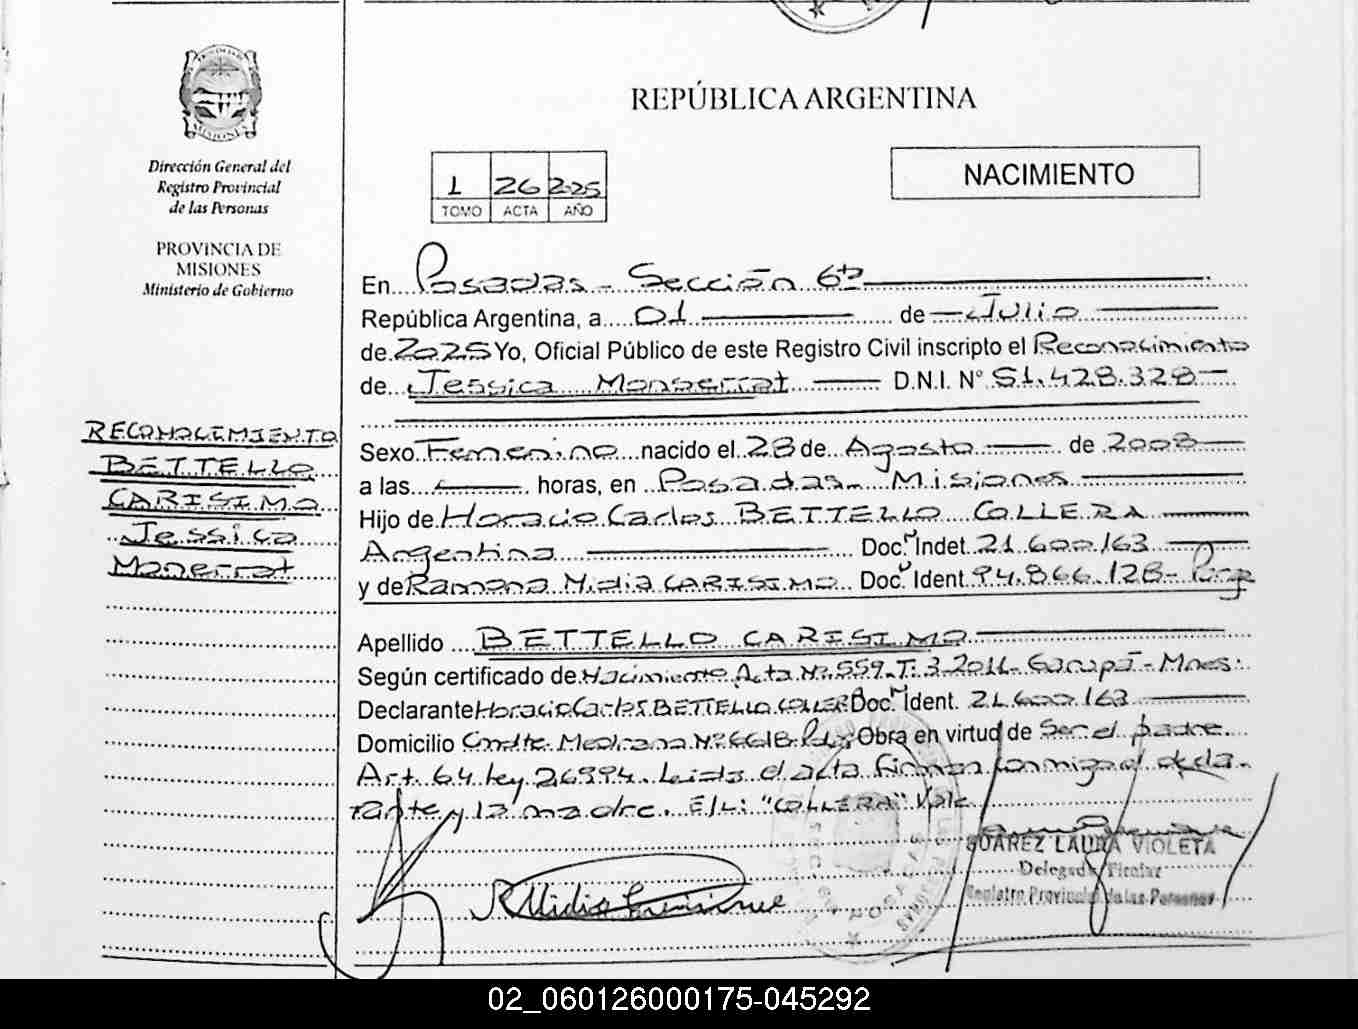 REPÚBLICA ARGENTINA
MISIONES
Dirección General del
Registro Provincial
de las Personas
PROVINCIA DE
MISIONES
Ministerio de Gobierno
1 26 2025
TOMO ACTA AÑO
NACIMIENTO
En Posadas - Sección 6ta
República Argentina, a 01 de Julio
de 2025 Yo, Oficial Público de este Registro Civil inscripto el Reconocimiento
de Jessica Monserrat D.N.I. N° 51.428.328
Sexo Femenino nacido el 28 de Agosto de 2008
a las horas, en Posadas - Misiones
Hijo de Horacio Carlos BETTELLO COLLERA
Argentina Doc. Indet 21.600.163
y de Ramona Nidia CARISIMO Doc. Ident 94.866.128-
Apellido BETTELLO CARISIMO
Según certificado de Nacimiento Acta N° 559. T: 3. 2011- Garupá - Mnes.
Declarante Horacio Carlos BETTELLO COLLERA Doc. Ident. 21.600.163
Domicilio Cmdte. Medrano N° 6618. Obra en virtud de Ser el padre
Art. 64 Ley 26994. Leida el acta firman conmigo el decla-
rante y la madre. E/L: "COLLERA" Vale
RECONOCIMIENTO
BETTELLO
CARISIMO
Jessica
Monserrat
SUÁREZ LAURA VIOLETA
Delegada Titular
Registro Provincial de las Personas
02_060126000175-045292